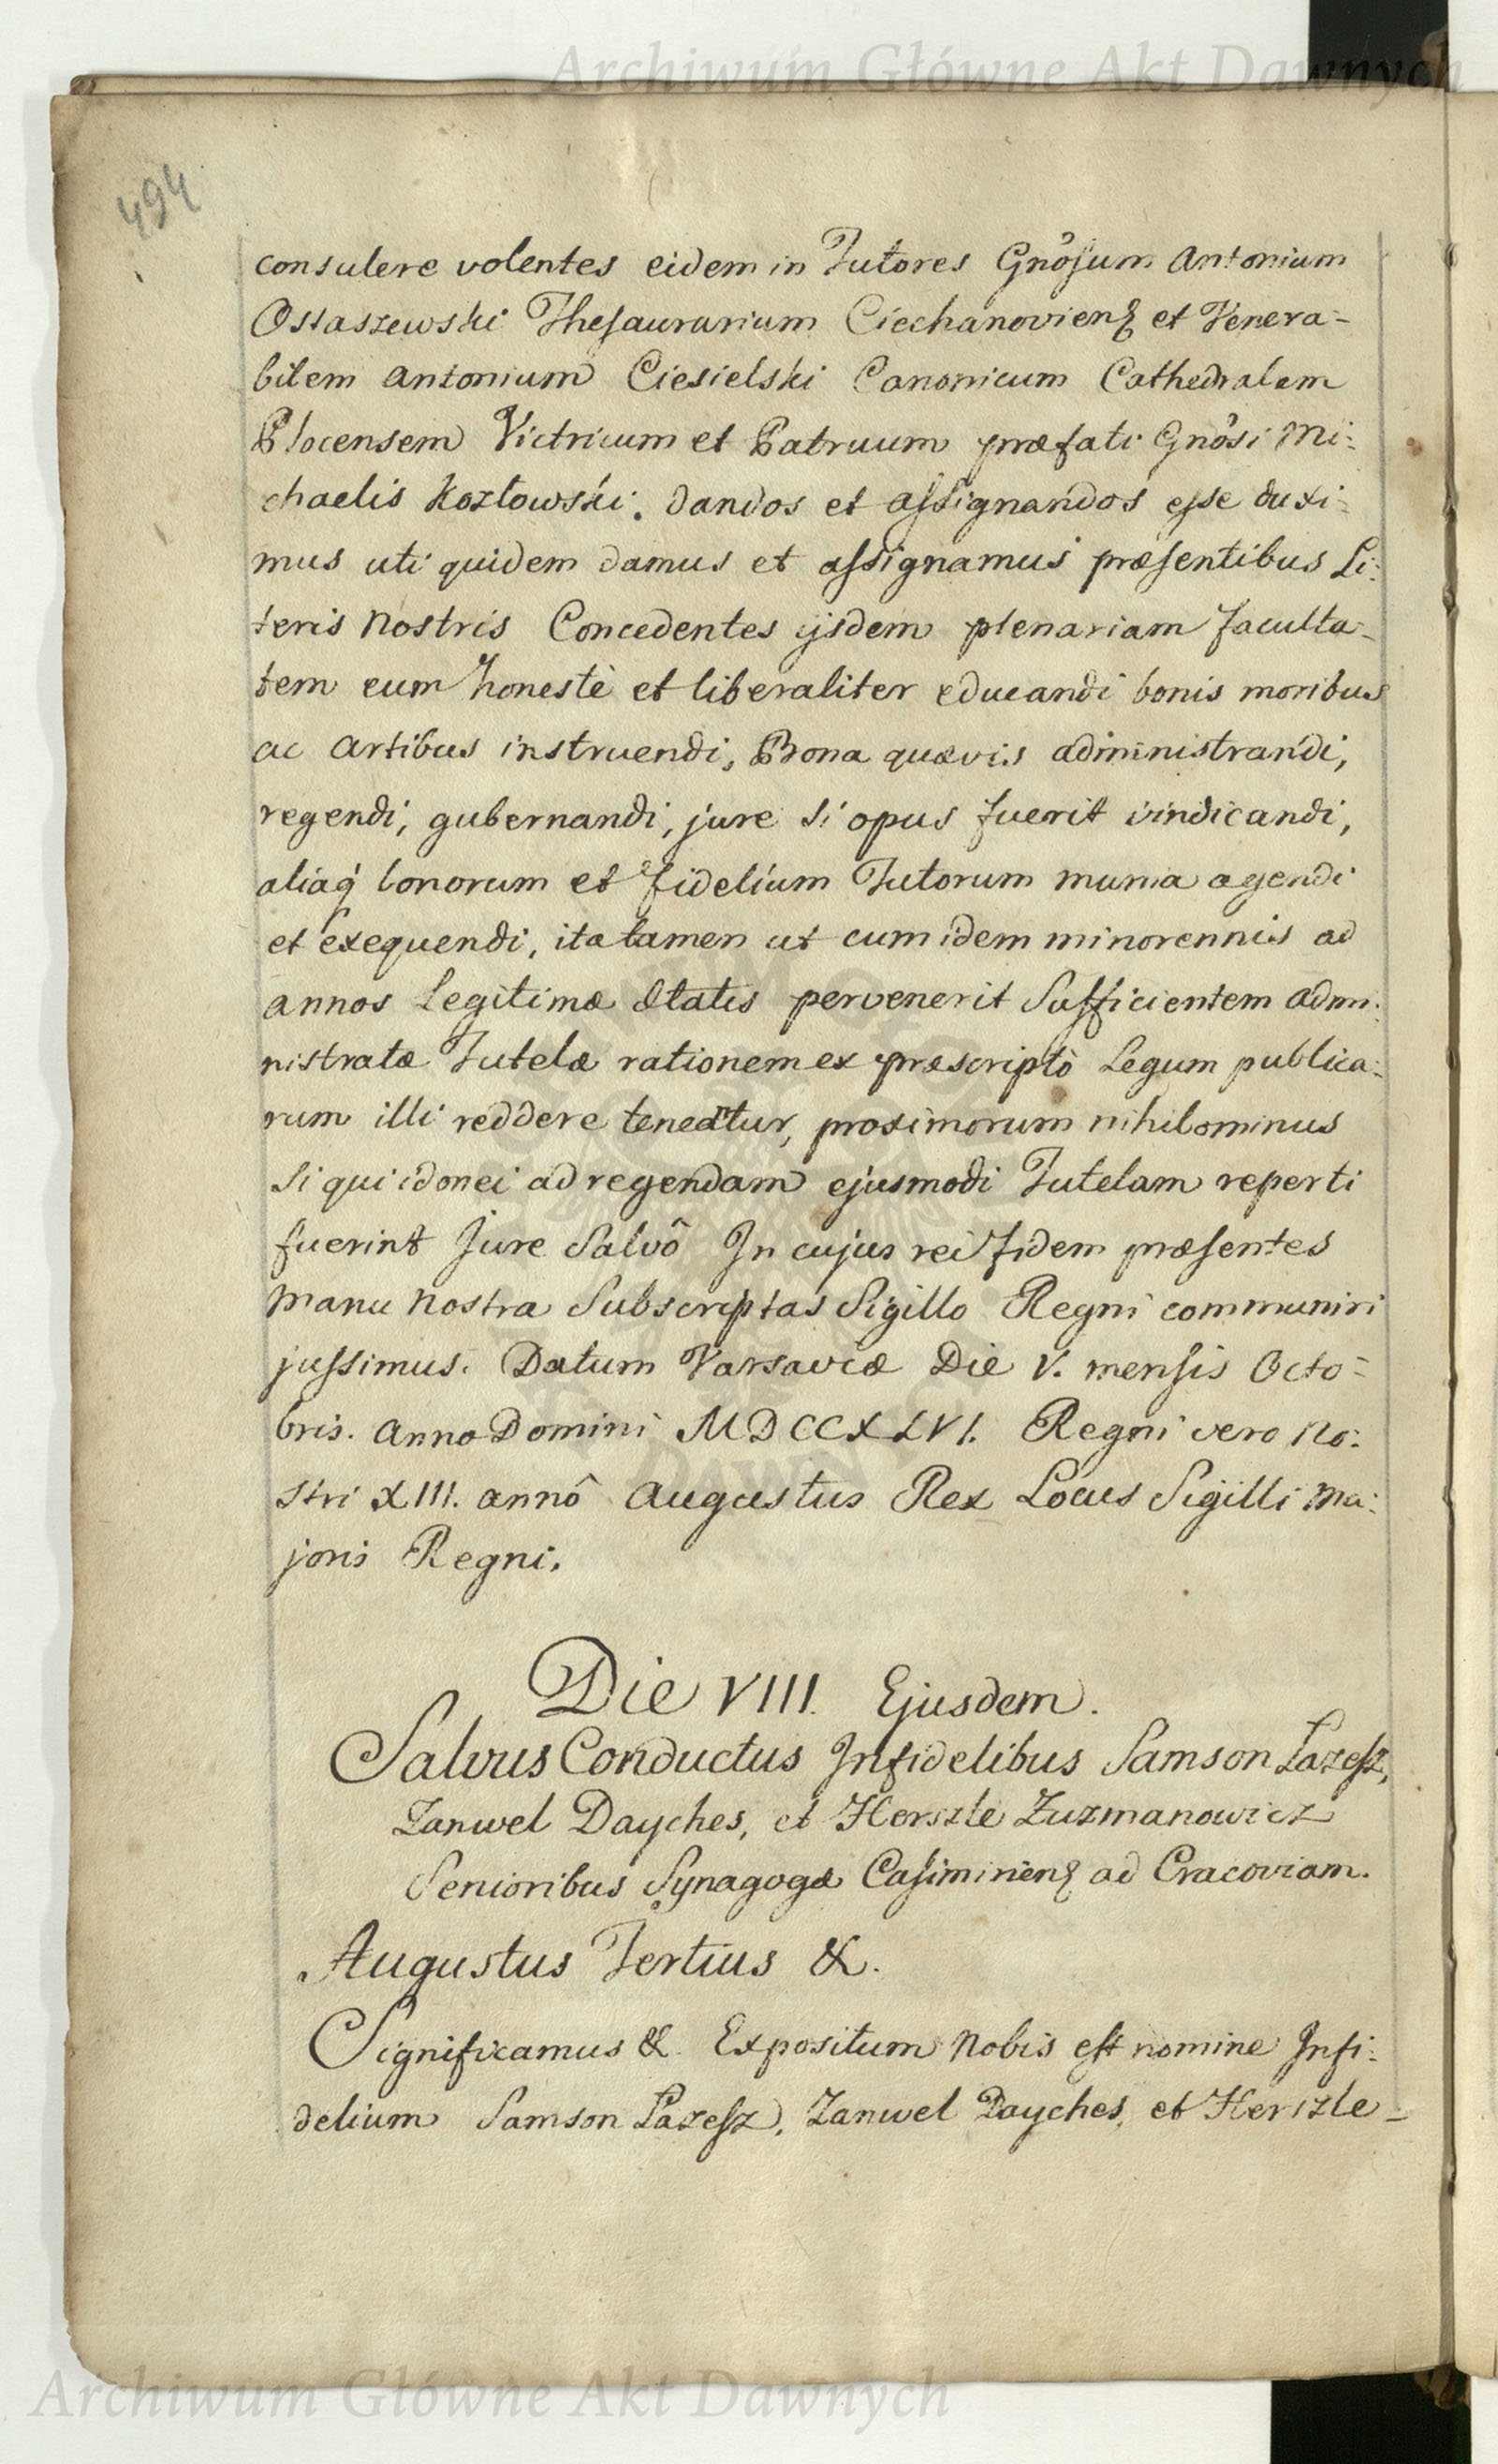 Archiwum Główne Akt Dawnych
494
consulere volentes eidem in Tutores Gnôsum Antonium
Ostaszewski Thesaurarium Ciechanovienę et Venera-
bilem Antonium Ciesielski Canonicum Cathedralem
Plocensem Victricum et Patruum præfati Gnôsi Mi:
chaelis Kozłowski. dandos et assignandos esse duxi:
mus uti quidem damus et assignamus præsentibus Li:
teris nostris Concedentes ijsdem plenariam faculta-
tem eum honestè et liberaliter educandi bonis moribus
ac artibus instruendi, Bona quævis administrandi,
regendi, gubernandi, jure si opus fuerit vindicandi,
aliaq́ bonorum et fidelium Tutorum munia agendi
et exequendi, ita tamen ut cum idem minorennis ad
annos Legitimæ ætatis pervenerit sufficientem admi:
nistratæ Tutelæ rationem ex præscriptô Legum publica:
rum illi reddere teneantur, proximorum nihilominus
si qui idonei ad regendam ejusmodi Tutelam reperti
fuerint Jure Salvô In cujus rei fidem præsentes
manu nostra Subscriptas Sigillo Regni communiri
jussimus. Datum Varsaviæ Die V. mensis Octo-
bris. Anno Domini MDCCXLVI. Regni vero No:
stri XIII. annô Augustus Rex Locus Sigilli Ma:
joris Regni.
Die VIII. Ejusdem.
Salvus Conductus Infidelibus Samson Lazesz,
Zanwel Dayches, et Herszle Zuzmanowicz
Senioribus Synagogæ Casimirienę ad Cracoviam.
Augustus Tertius &.
Significamus &. Expositum Nobis est nomine Infi:
delium Samson Lazesz, Zanwel Dayches, et Herszle-
Archiwum Główne Akt Dawnych